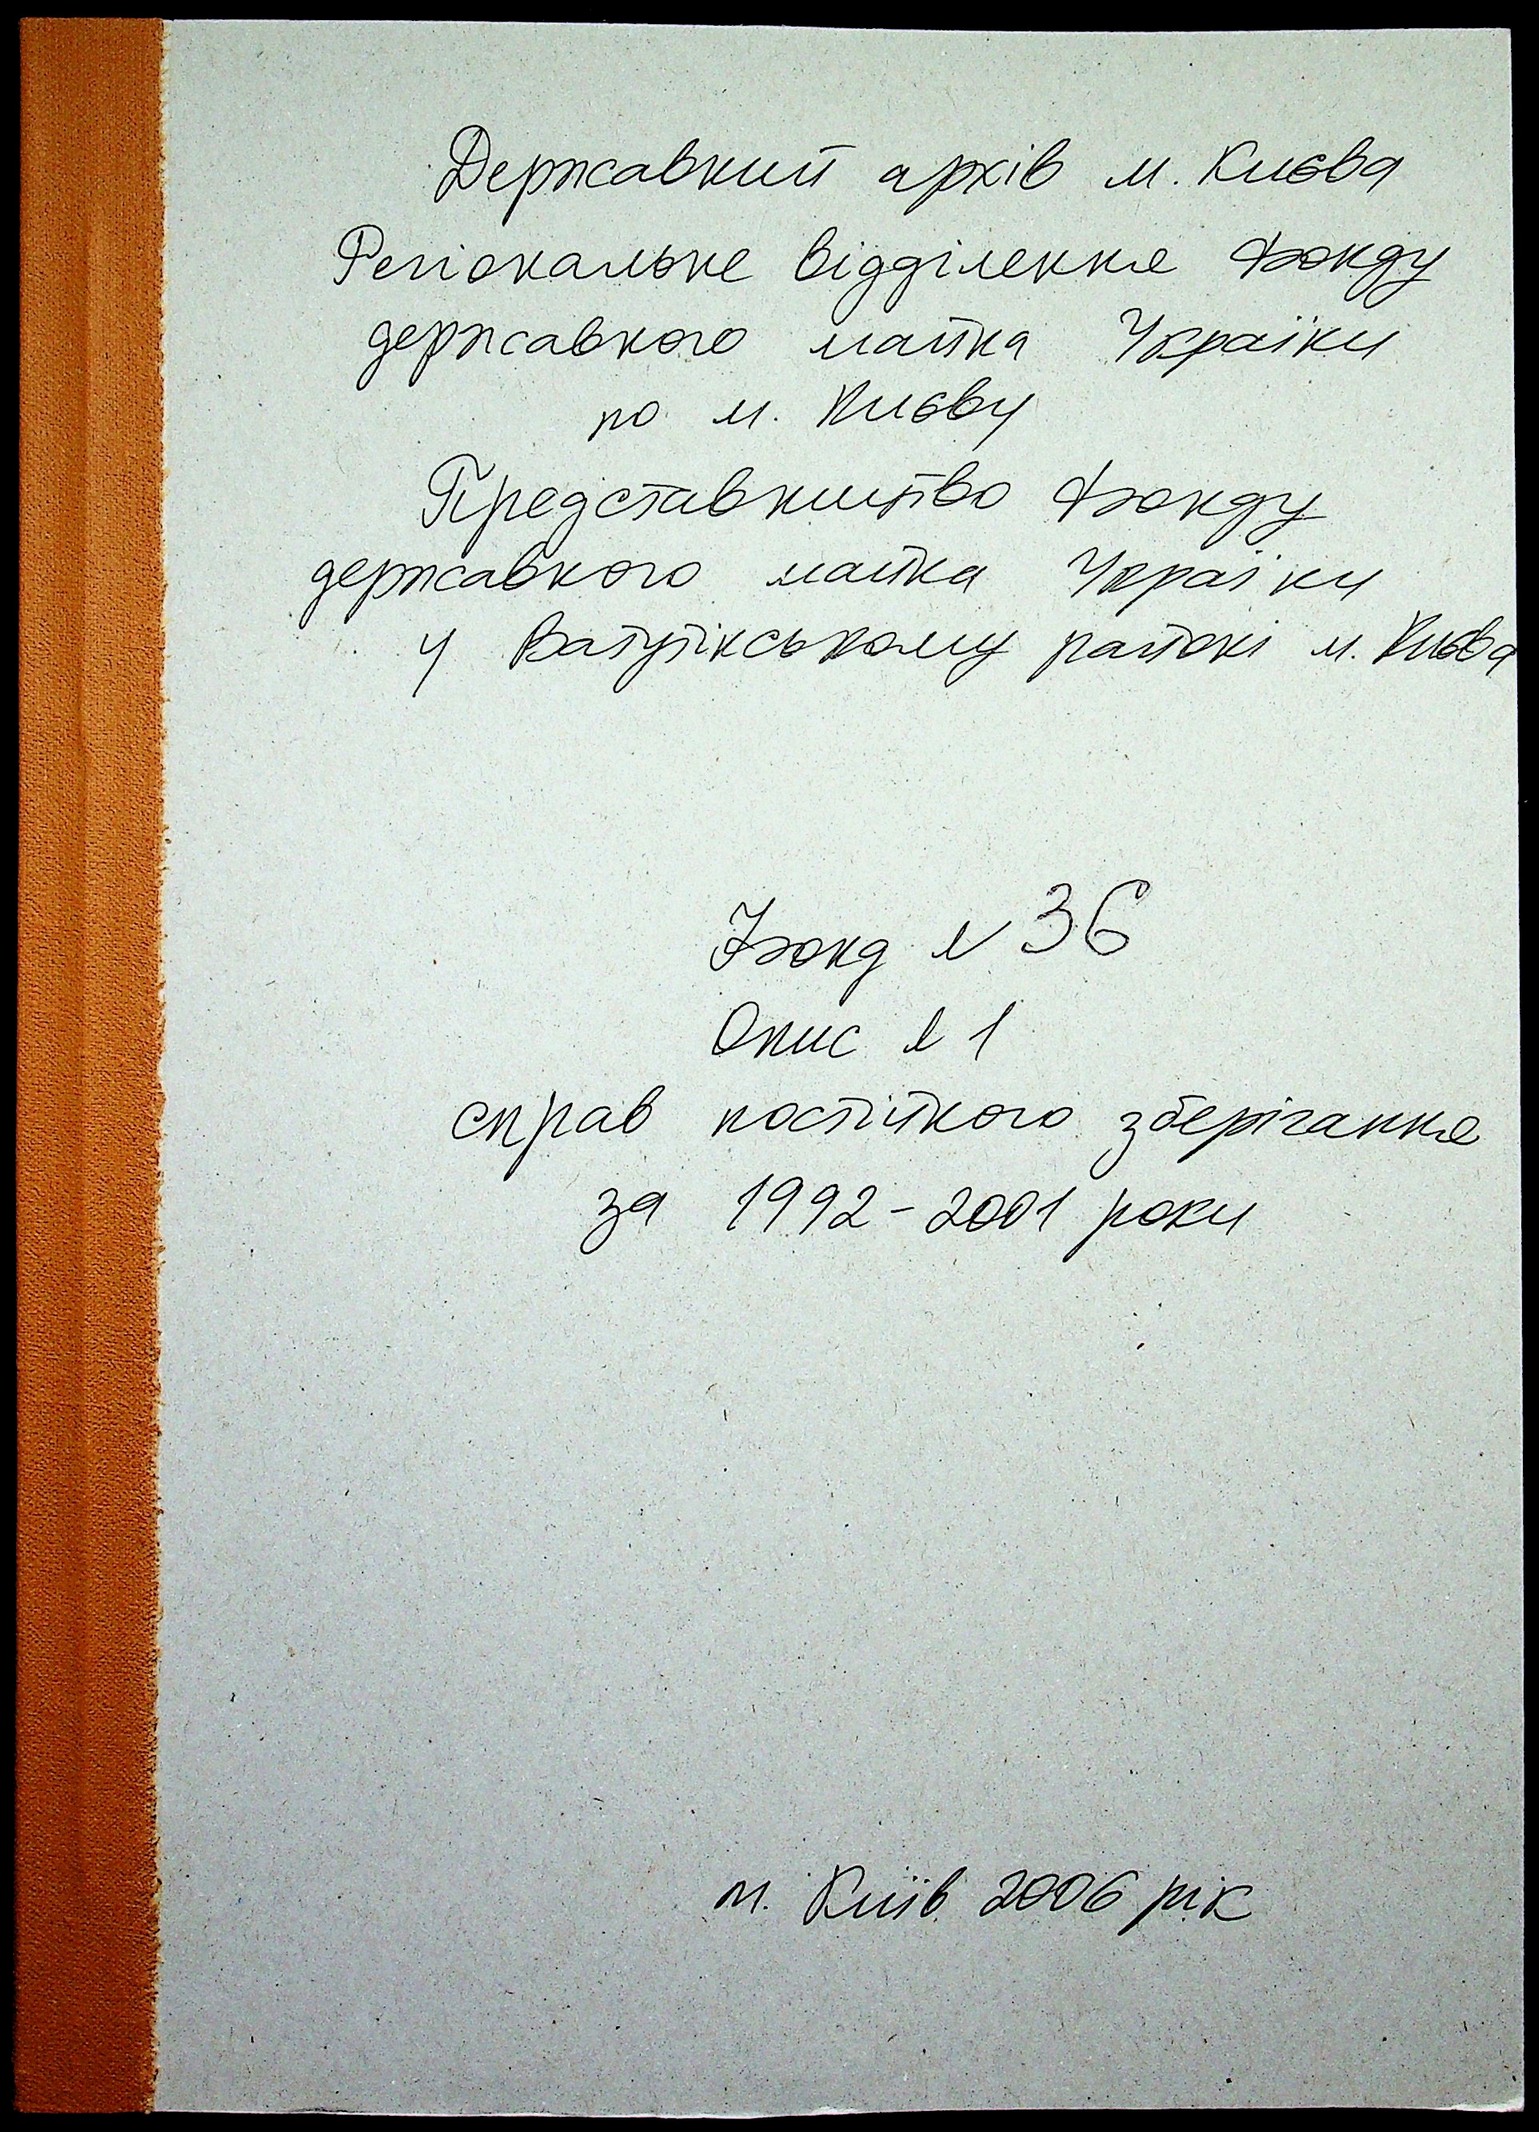 Державний архів м. Києва
Регіональне відділення Фонду
державного майна України
по м. Києву
Представництво Фонду
державного майна України
у Ватутінському районі м. Києва
Фонд № 36
Опис № 1
справ постійного зберігання
за 1992-2001 роки
м. Київ 2006 рік